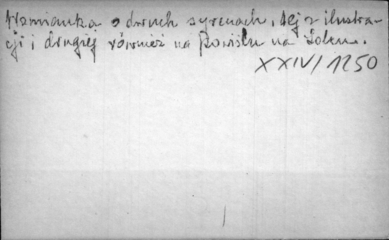 Wzmianka o dwuch syrenach, tej z ilustra-
cji i drugiej również na Powiślu na Solcu.
XXIV/1250